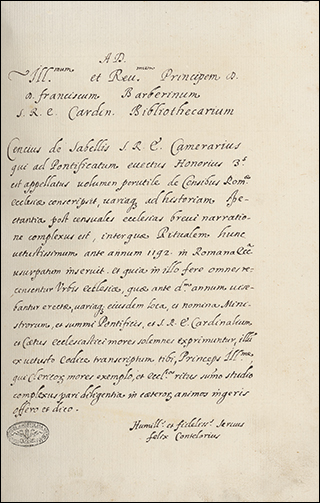 AD
Ill.mum et Reu.mum Principem D.
D. franciscum Barberinum
S. R. E. Cardin. Bibliothecarium
Cencius de Sabellis S. R. E. Camerarius
qui ad Pontificatum euectus Honorius 3.s
est appellatus volumen perutile de Censibus Rom.æ
ecclesiæ conscripsit, variaq. ad historiam spe-
ctantia post censuales ecclesias breui narratio-
ne complexus est, inter quæ Ritualem hunc
uetustissimum ante annum 1192. in Romana
usurpatum inseruit. et quia in illo fere omnes re-
censentur Vrbis Ecclesiæ, quæ ante d.m annum uise-
bantur erectæ, variaq. eiusdem loca, et nomina Mini-
strorum, et summi Pontificis, et S. R. E. Cardinalium
et Cætus ecclesiastici mores solemnes exprimuntur, illū
ex uetusto Codice transcriptum tibi, Princeps Ill.me
qui Clericoȝ mores exemplo, et eccl.cos ritus sūmo studio
complexus pari diligentia in cæteroȝ animos ingeris
offero et dico.
Humill.s et fidelis.s Seruus
felix Contelorius